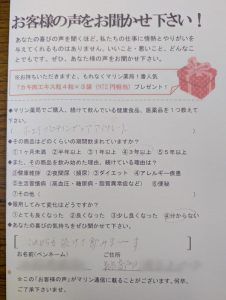 お客様の声をお聞かせ下さい！
あなたの喜びの声を聞くほど、私たちの仕事に情熱とやりがいを
与えてくれるものはありません。いいこと・悪いこと、どんなこ
とでもです。ぜひ、あなた様の声をお聞かせ下さい。
※お持ちいただきますと、もれなくマリン薬局1番人気
『カキ肉エキス粒4粒×3袋
プレゼント！
◆マリン薬局でご購入、続けて飲んでいる健康食品、医薬品を1つ教えて
下さい。
◆その商品はどのくらいの期間飲まれていますか？
①1ヶ月未満 ②半年以上 ③1年以上 ④3年以上 ⑤5年以上
◆また、その商品を飲み始めた理由、続けている理由は？
①健康維持 ②夜間尿（頻尿） ③ダイエット ④アレルギー疾患
⑤生活習慣病（高血圧・糖尿病・脂質異常症など） ⑥便秘
⑦その他（
◆服用してみて変化はどうですか？
①とても良くなった ②良くなった ③少し良くなった ④分からない
◆あなたの喜びの気持ちをぜひお聞かせ下さい。
お名前(ペンネーム) ご住所
※この「お客様の声」がマリン通信に載ることがございます。何卒、
ご了承下さいませ。